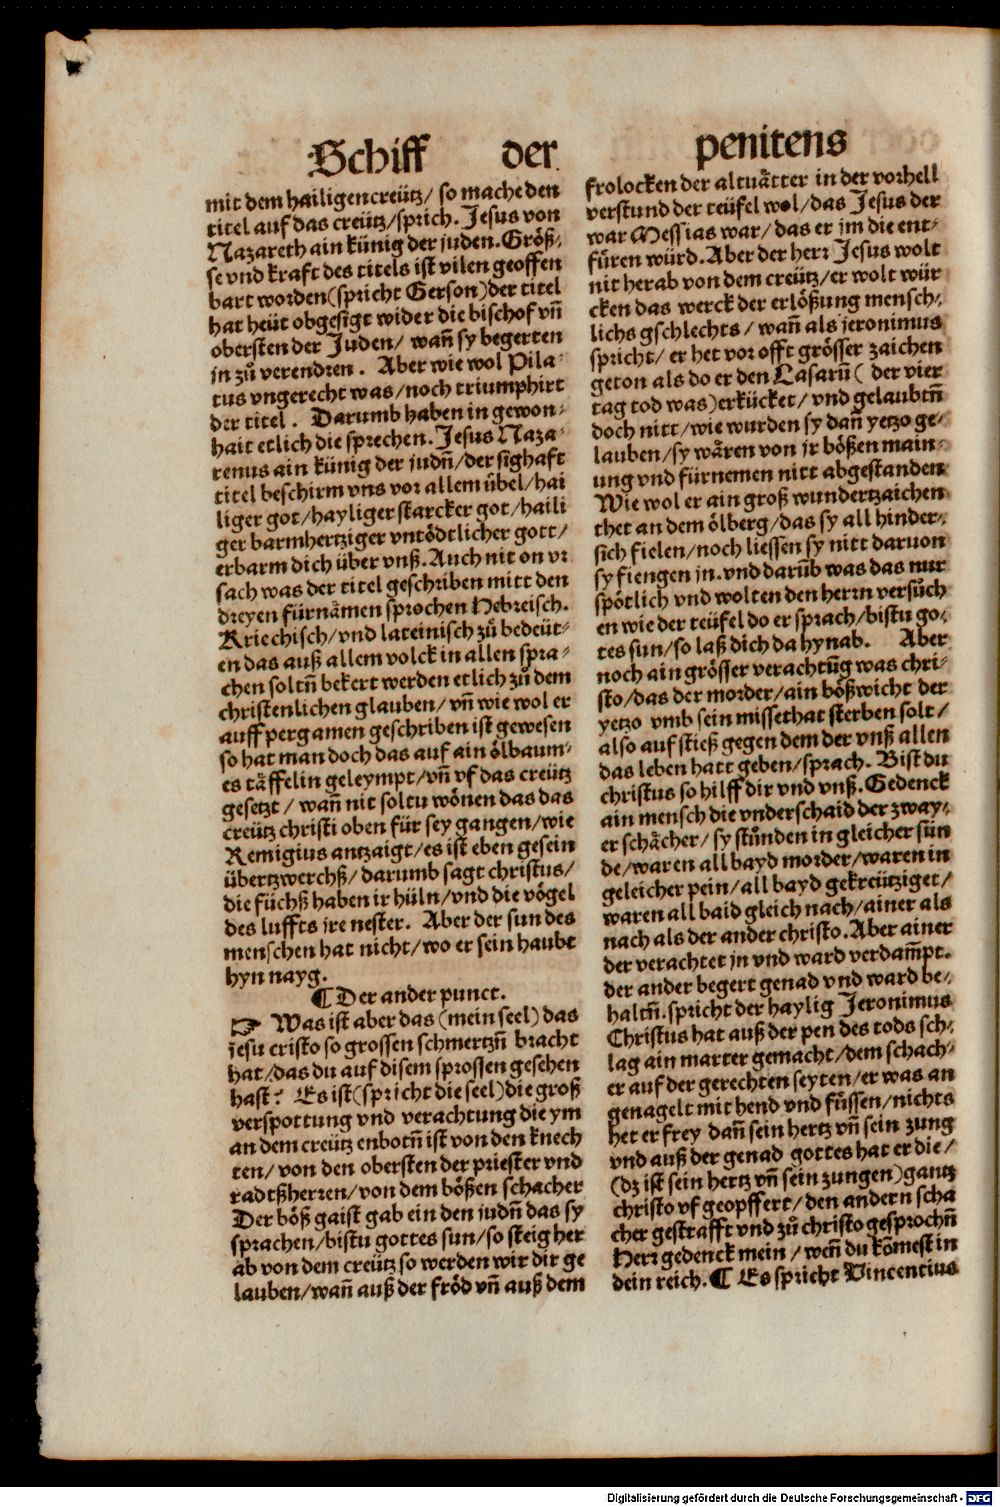 Schiff der penitens
mit dem hailigen creütz/ so mache den
titel auf das creütz/sprich. Jesus von
Nazareth ain künig der juden. Größ⸗
se vnd kraft des titels ist vilen geoffen
bart worden(spricht Gerson)der titel
hat heüt obgesigt wider die bischof vn̄
obersten der Juden/ wan̄ sy begerten
jn zů verendren. Aber wie wol Pila⸗
tus vngerecht was/noch triumphirt
der titel. Darumb haben in gewon⸗
hait etlich die sprechen. Jesus Naza⸗
renus ain künig der judn̄/der sighaft
titel beschirm vns vor allem übel/hai
liger got/hayliger starcker got/haili
ger barmhertziger vntödtlicher gott/
erbarm dich über vnß. Auch nit on vr
sach was der titel geschriben mitt den
dreyen fürnämen sprochen Hebreisch.
Kriechisch/vnd lateinisch zů bedeüt⸗
en das auß allem volck in allen spra⸗
chen soltn̄ bekert werden etlich zů dem
christenlichen glauben/ vn̄ wie wol er
auff pergamen geschriben ist gewesen
so hat man doch das auf ain ölbaum⸗
es täffelin geleympt/vn̄ vf das creütz
gesetzt / wan̄ nit soltu wönen das das
creütz christi oben für sey gangen/wie
Remigius antzaigt/es ist eben gesein
übertzwerchß/ darumb sagt christus/
die füchß haben ir hüln/vnd die vögel
des luffts jre nester. Aber der sun des
menschen hat nicht/wo er sein haubt
hyn nayg.
¶ Der ander punct.
☞ Was ist aber das (mein seel) das
jesu cristo so grossen schmertzn̄ bracht
hat/das du auf disem sprossen gesehen
hast? Es ist(spricht die seel)die groß
verspottung vnd verachtung die ym
an dem creütz enbotn̄ ist von den knech
ten/ von den obersten der priester vnd
radtßherren/von dem bößen schacher
Der böß gaist gab ein den judn̄ das sy
sprachen/bistu gottes sun/so steig her
ab von dem creütz so werden wir dir ge
lauben/wan̄ auß der fröd vn̄ auß dem
frolocken der altuätter in der vorhell
verstund der teüfel wol/das Jesus der
war Messias war/das er jm die ent⸗
füren würd. Aber der herr Jesus wolt
nit herab von dem creütz/er wolt wür
cken das werck der erlößung mensch⸗
lichs gschlechts / wan̄ als jeronimus
spricht/ er het vor offt grösser zaichen
geton als do er den Lasarū ( der vier
tag tod was)erkücket/ vnd gelaubtn̄
doch nitt/wie wurden sy dan̄ yetzo ge⸗
lauben/sy wären von jr bößen main⸗
ung vnd fürnemen nitt abgestanden
Wie wol er ain groß wundertzaichen
thet an dem ölberg/das sy all hinder⸗
sich fielen/noch liessen sy nitt daruon
sy fiengen jn. vnd darūb was das nur
spötlich vnd wolten den herrn versůch
en wie der teüfel do er sprach/bistu go⸗
tes sun/so laß dich da hynab. Aber
noch ain grösser verachtūg was chri⸗
sto/das der morder/ain bößwicht der
yetzo vmb sein missethat sterben solt/
also auf stieß gegen dem der vnß allen
das leben hatt geben/sprach. Bist du
christus so hilff dir vnd vnß. Gedenck
ain mensch die vnderschaid der zway⸗
er schächer/ sy stůnden in gleicher sün
de/waren all bayd morder/waren in
geleicher pein/all bayd gekreütziget/
waren all baid gleich nach/ainer als
nach als der ander christo. Aber ainer
der verachtet jn vnd ward verdam̄pt.
der ander begert genad vnd ward be⸗
haltn̄. spricht der haylig Jeronimus
Christus hat auß der pen des tods sch⸗
lag ain marter gemacht/dem schach⸗
er auf der gerechten seyten/er was an
genagelt mit hend vnd füssen/nichts
het er frey dan̄ sein hertz vn̄ sein zung
vnd auß der genad gottes hat er die/
(dz ist sein hertz vn̄ sein zungen)gantz
christo vf geopffert/den andern scha
cher gestrafft vnd zů christo gesprochn̄
Herr gedenck mein / wen̄ du kōmest in
dein reich. ¶ Es spricht Vincentius
Digitalisierung gefördert durch die Deutsche Forschungsgemeinschaft - DFG